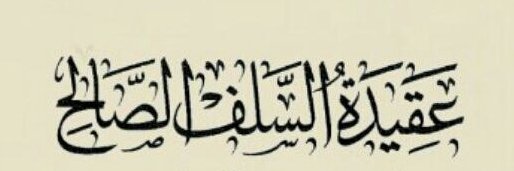 عَقِيدَةُ السَّلَفِ الصَّالِحِ